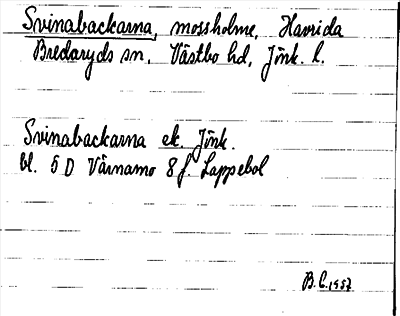 Svinabackarna, mossholme, Havrida
Bredaryds sn, Västbo hd, Jönk. l.
Svinabackarna ek. Jönk.
bl. 5 D Värnamo 8 f. Lappebol
B.C. 1957